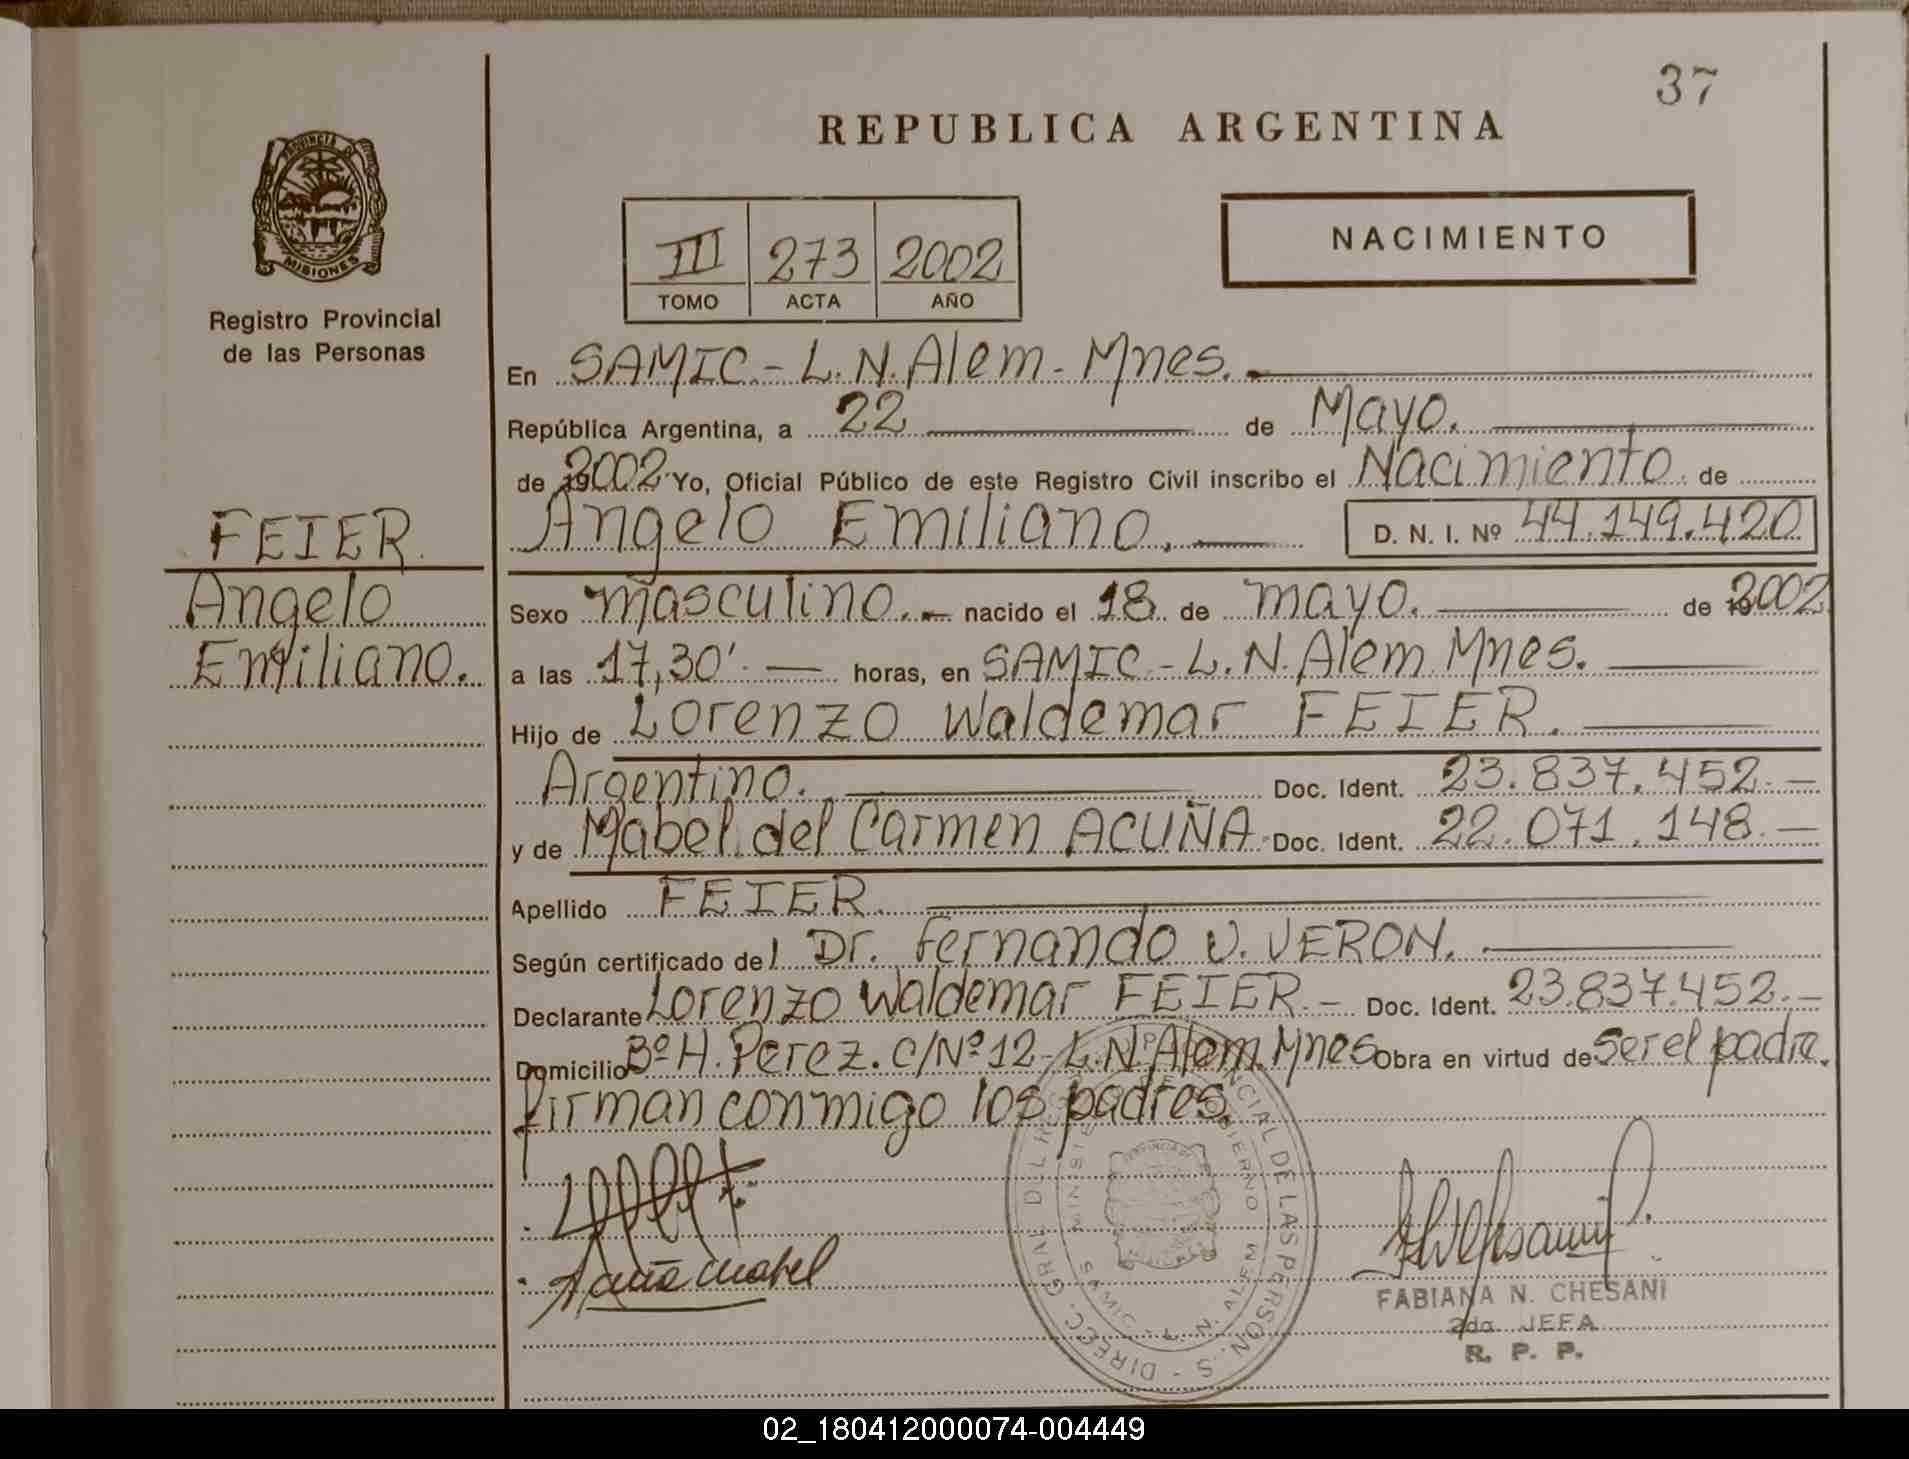 37
REPUBLICA ARGENTINA
PROVINCIA DE
MISIONES
Registro Provincial
de las Personas
III 273 2002
TOMO ACTA AÑO
NACIMIENTO
En SAMIC.- L.N.Alem- Mnes.
República Argentina, a 22 de Mayo.
de 2002 Yo, Oficial Público de este Registro Civil inscribo el Nacimiento de
Angelo Emiliano. D. N. I. Nº 44.149.420
FEIER.
Angelo
Emiliano.
Sexo masculino.- nacido el 18 de mayo. de 2002
a las 17,30'. horas, en SAMIC.- L.N.Alem Mnes.
Hijo de Lorenzo Waldemar FEIER.
Argentino. Doc. Ident. 23.837.452.-
y de Mabel del Carmen ACUÑA Doc. Ident. 22.071.148.-
Apellido FEIER.
Según certificado del Dr. Fernando V. VERON.
Declarante Lorenzo Waldemar FEIER.- Doc. Ident. 23.837.452.-
Domicilio Bº H. Perez. C/Nº 12- L.N.Alem. Mnes Obra en virtud de Ser el padre.
firman conmigo los padres.
Acuña Mabel
DIREC. GRAL. DEL PROVINCIAL DE LAS PERSON.S -
SAMIC - L. N. ALEM
FABIANA N. CHESANI
2da. JEFA
R. P. P.
02_180412000074-004449